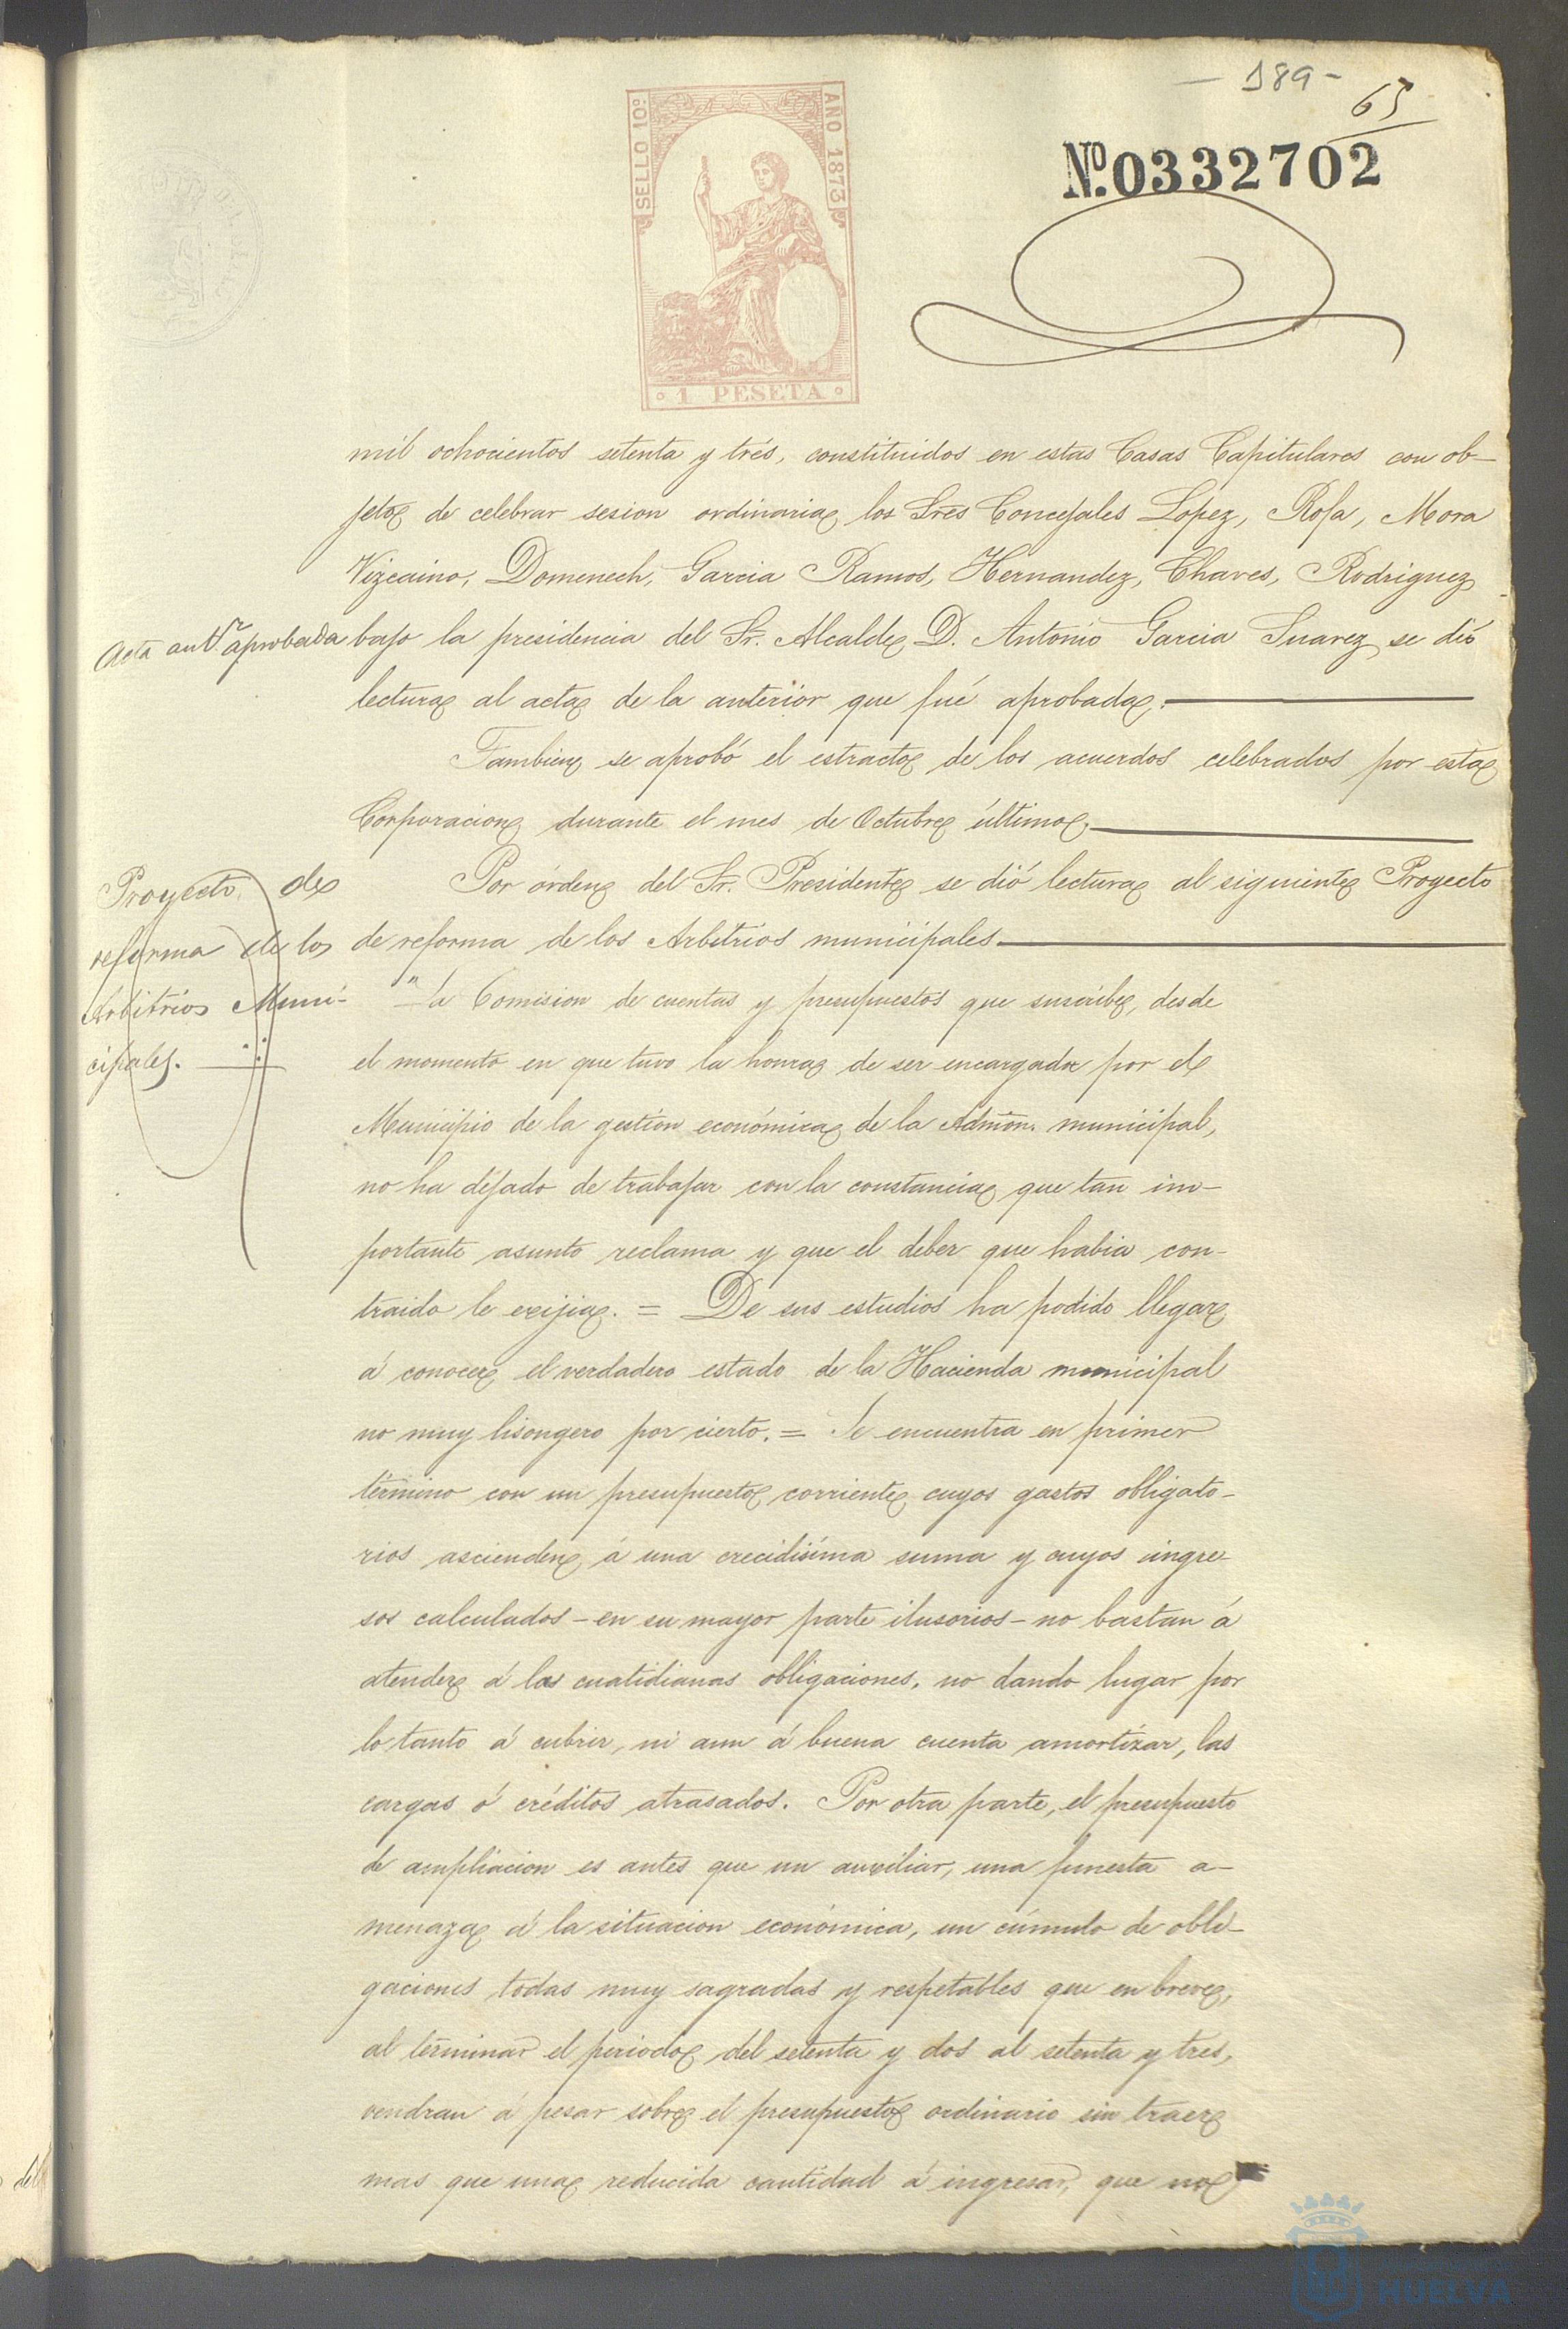 - 189 -
65
SELLO 10º
AÑO 1873
1 PESETA
Nº 0332702
mil ochocientos setenta y trés, constituidos en estas Casas Capitulares con ob-
jeto de celebrar sesion ordinaria los Sres Concejales Lopez, Rofa, Mora
Vizcaino, Domenech, Garcia Ramos, Hernandez, Chaves, Rodriguez
Acta antr. aprobada
bajo la presidencia del Sr. Alcalde D. Antonio Garcia Suarez se dió
lectura al acta de la anterior que fué aprobada.
Tambien se aprobó el estracto de los acuerdos celebrados por esta
Corporacion durante el mes de Octubre último.
Proyecto de
reforma de los
Arbitrios Muni-
cipales.
Por órden del Sr. Presidente se dió lectura al siguiente Proyecto
de reforma de los Arbitrios municipales.
"La Comision de cuentas y presupuestos que suscribe, desde
el momento en que tuvo la honra de ser encargada por el
Municipio de la gestion económica de la Admon. municipal,
no ha dejado de trabajar con la constancia que tan im-
portante asunto reclama y que el deber que habia con-
traido le exijia. = De sus estudios ha podido llegar
á conocer el verdadero estado de la Hacienda municipal
no muy lisongero por cierto. = Se encuentra en primer
término con un presupuesto corriente cuyos gastos obligato-
rios ascienden á una crecidisima suma y cuyos ingre-
sos calculados - en su mayor parte ilusorios - no bastan á
atender á las cuatidianas obligaciones, no dando lugar por
lo tanto á cubrir, ni aun á buena cuenta amortizar, las
cargas ó créditos atrasados. Por otra parte, el presupuesto
de ampliacion es antes que un auxiliar, una funesta a-
menaza á la situacion económica, un cúmulo de obli-
gaciones todas muy sagradas y respetables que en breve,
al terminar el periodo del setenta y dos al setenta y tres,
vendran á pesar sobre el presupuesto ordinario sin traer
mas que una reducida cantidad á ingresar, que no
HUELVA